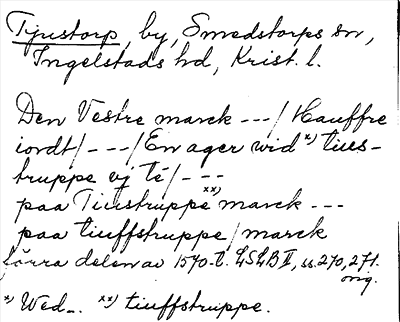 Tjustorp, by, Smedstorps sn,
Ingelstads hd, Krist. l.
Den Vestre marck --- / Hauffre
iordt / --- / En ager wid x) tius-
truppe vj té / ---
paa Tiustruppe xx) marck ---
paa tiuffstruppe / marck
förra delen av 1570-t. LSLB II, ss. 270, 271.
orig.
x) Wed... xx) tiuffstruppe.